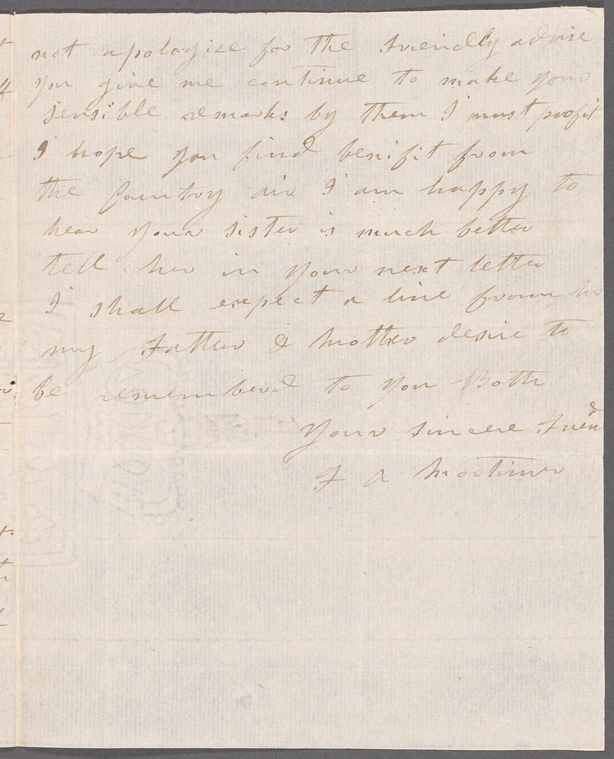 not apologize for the friendly advise
you give me continue to make your
sensible remarks by them I must profit
I hope you find benifit from
the Country air I am happy to
hear your sister is much better
tell her in your next letter
I shall expect a line from her
my Father & Mother desire to
be rememberd to you Both
Your sincere Friend
F A Mortimer